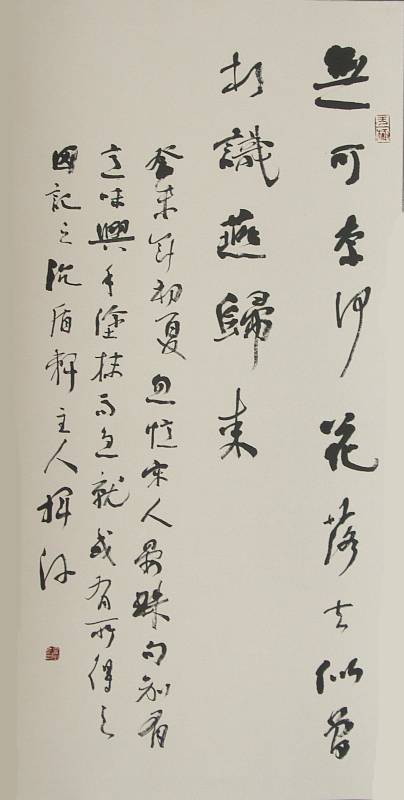 無可奈何花落去似曾
相識燕歸來
癸未年初夏忽憶宋人晏殊句有
味興手塗抹而急就或有所得
記之沉盾軒主人揮汗